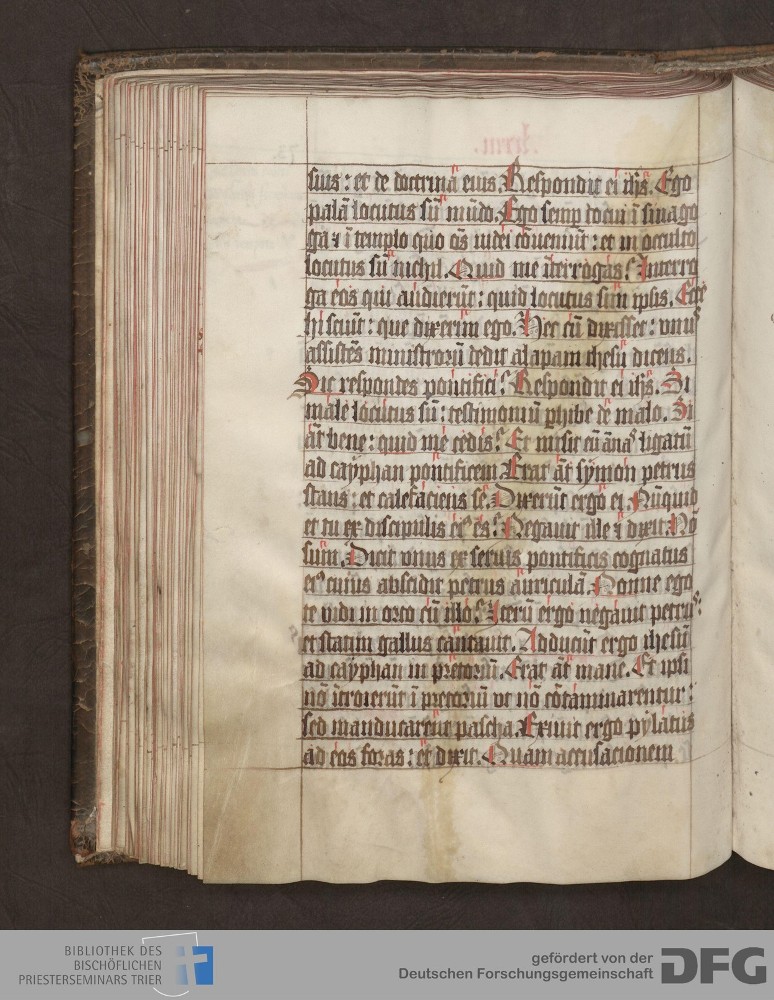 suis : et de doctrina eius. Respondit ei ihs̄. Ego
palā locutus sū mūdo. Ego semp docui ī sinago
ga ⁊ ī templo quo oēs iudei cōueniūt : et in occulto
locutus sū nichil. Quid me īterrogas? Interro
ga eos qui audierūt : quid locutus sim ipsis. Ecce
hi sciūt : que dixerim ego. Hec cū dixisset : vnus
assistēs ministrorū dedit alapam ihesu dicens.
Sic respondes pontifici? Respondit ei ihs̄. Si
male locutus sū : testimoniū phibe de malo. Si
āt bene : quid me cedis? Et misit eū annas ligatū
ad cayphan pontificem. Erat āt symon petrus
stans : et calefaciens se. Dixerūt ergo ei. Nūquid
et tu ex discipulis eiꝰ es? Negauit ille ⁊ dixit. Nō
sum. Dicit vnus ex seruis pontificis cognatus
eiꝰ cuius abscidit petrus auriculā. Nonne ego
te vidi in orto cū illo? Iterū ergo negauit petrus :
et statim gallus cantauit. Adducūt ergo ihesū
ad cayphan in pretoriū. Erat āt mane. Et ipsi
nō ītroierūt ī pretoriū vt nō cōtaminarentur :
sed manducarent pascha. Exiuit ergo pylatus
ad eos foras : et dixit. Quam accusacionem
BIBLIOTHEK DES
BISCHÖFLICHEN
PRIESTERSEMINARS TRIER
gefördert von der
Deutschen Forschungsgemeinschaft
DFG